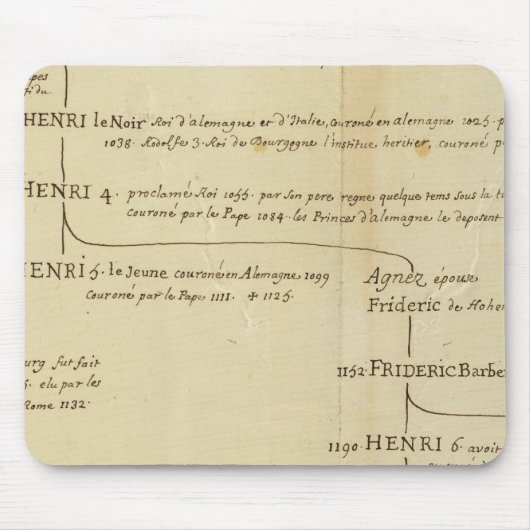 pes
fi du
HENRI le Noir Roi d'alemagne et d'Italie, couroné en alemagne 1025. p
1038. Rodolfe 3. Roi de Bourgogne l'institue heritier, couroné p
HENRI 4. proclamé Roi 1055. par son pere regne quelque tems sous la t
Couroné par le Pape 1084. les Princes d'Alemagne le deposent
HENRI 5. le Jeune couroné en Alemagne 1099
Couroné par le Pape 1111. ✠ 1125.
Agnez épouse
Frideric de Hohen
ourg fut fait
5. elu par les
Rome 1132.
1152. FRIDERIC Barbe
1190. HENRI 6. avoit